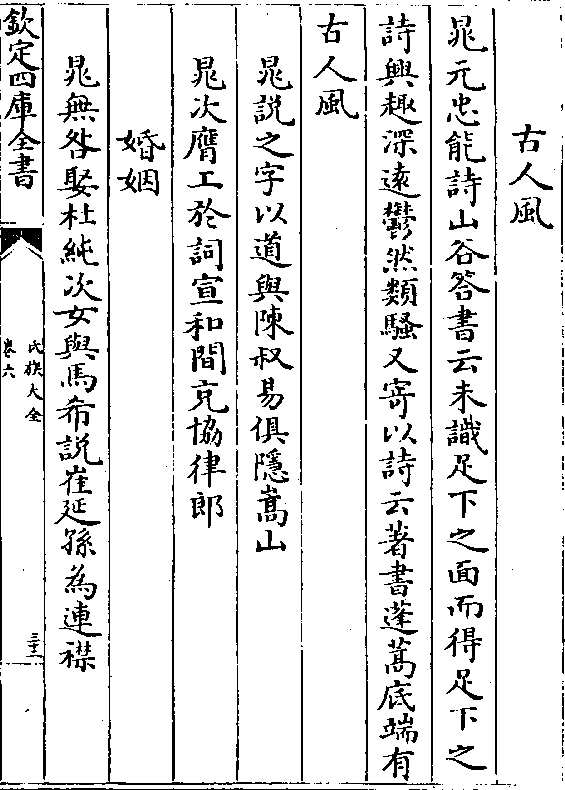 古人風
晁元忠能詩山谷答書云未識足下之面而得足下之
詩興趣深逺鬱然類騷又寄以詩云著書蓬蒿底端有
古人風
晁説之字以道與陳叔易俱隱嵩山
晁次膺工於詞宣和間充協律郎
婚姻
晁無咎娶杜純次女與馬希説崔延孫為連襟
欽定四庫全書
氏族大全
卷六
三十二